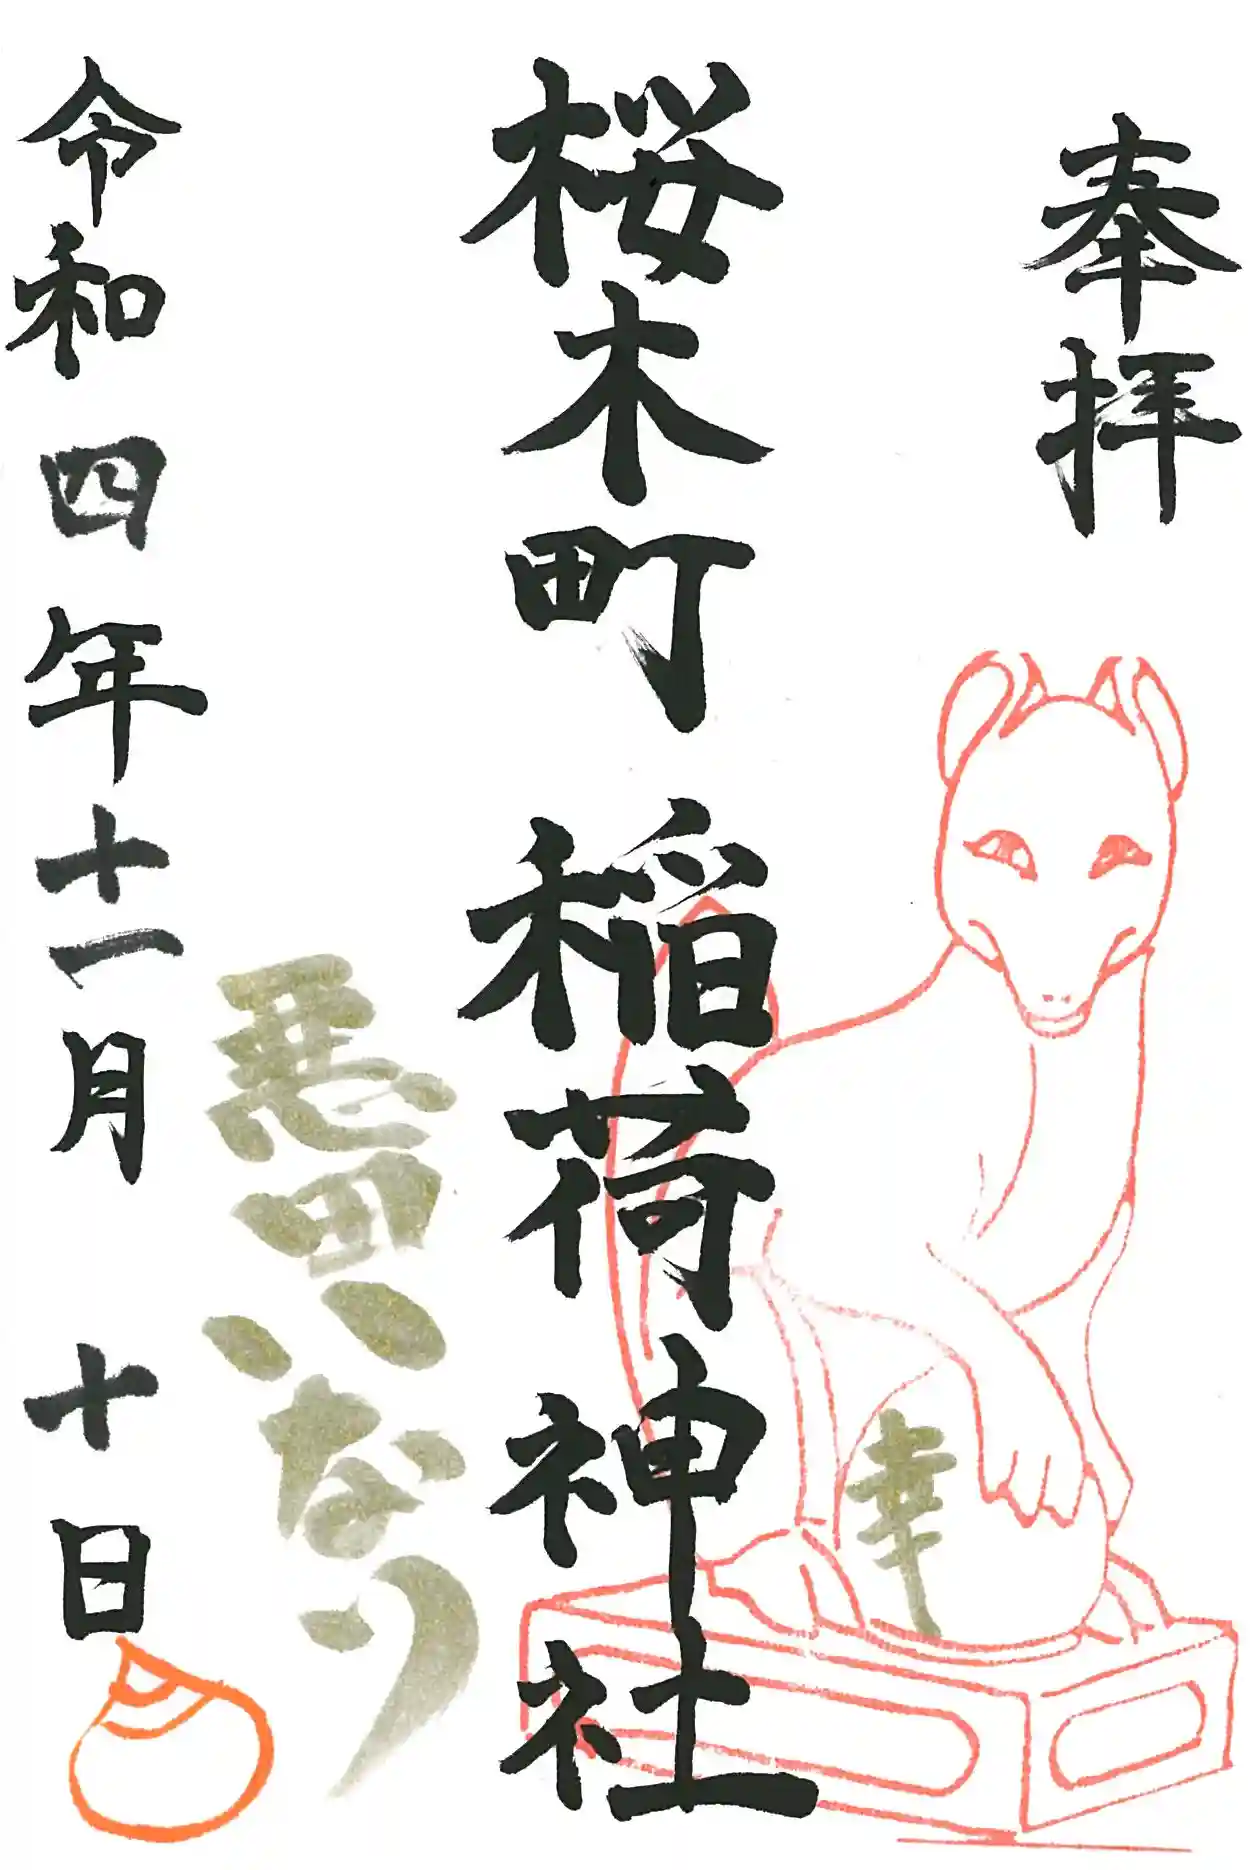 奉拝
幸
桜木町稲荷神社
悪田いなり
令和四年十一月十日